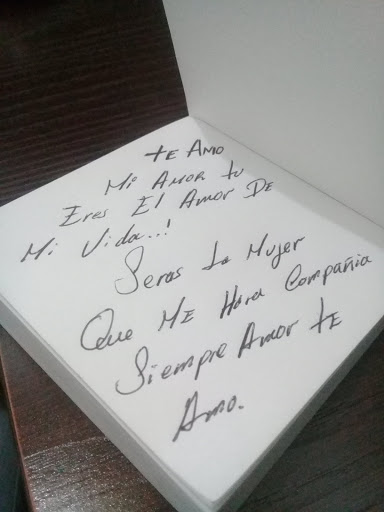 te Amo
Mi Amor tu
Eres El Amor De
Mi Vida..!
Seras La Mujer
Que Me Hara Compañia
Siempre Amor te
Amo.